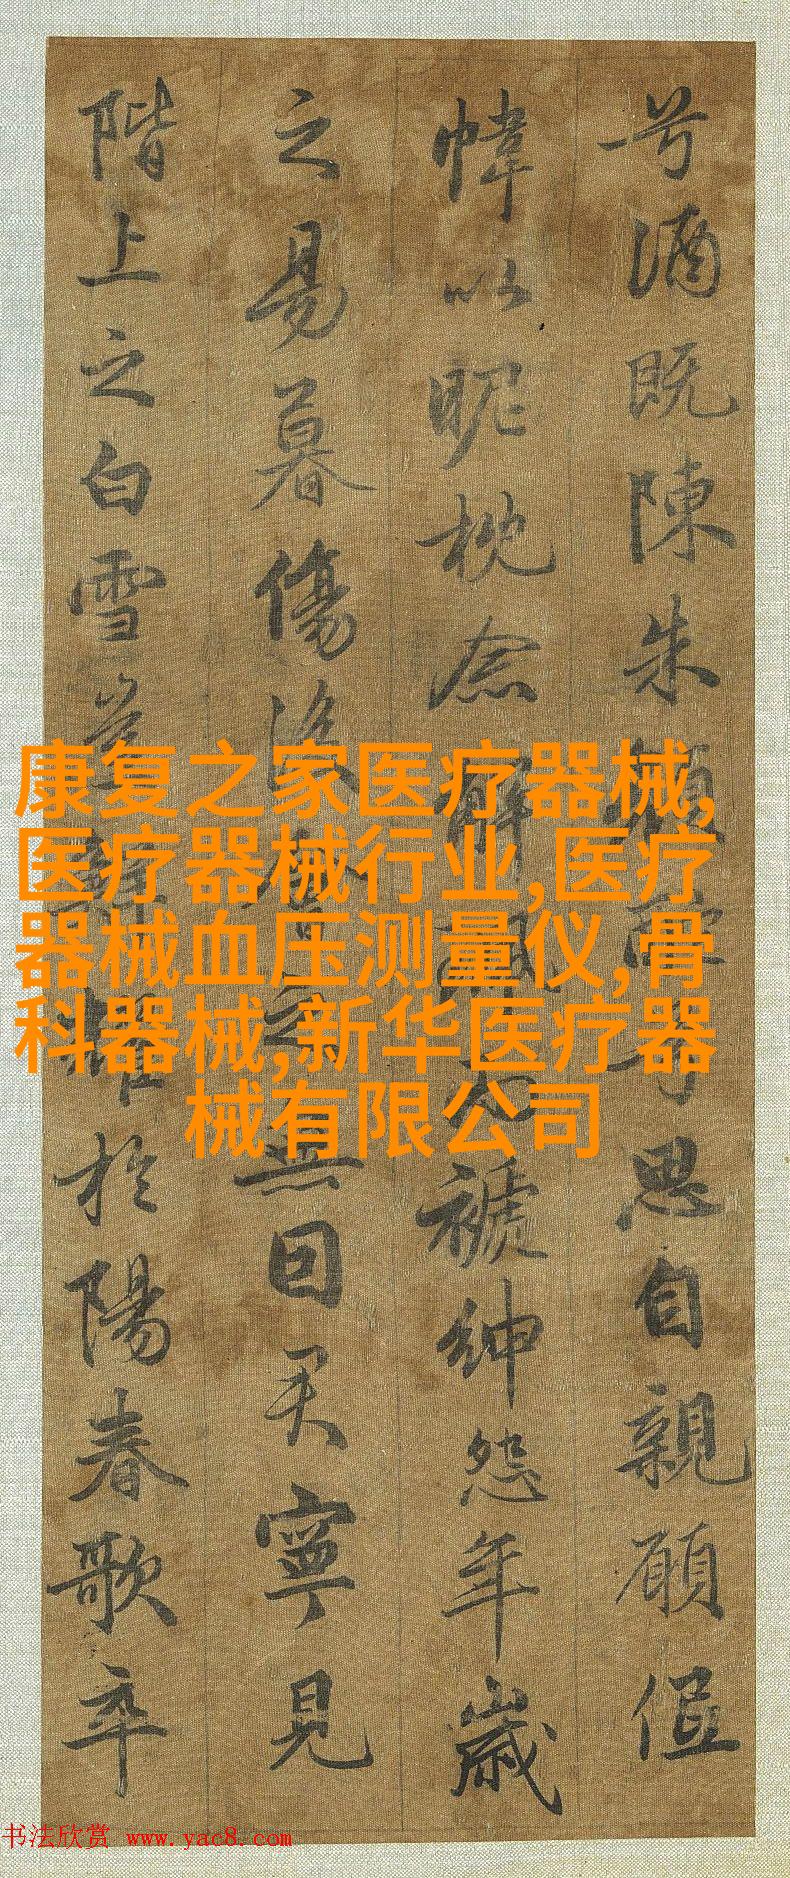 兮酒既陳朱顏酡兮思自親願低
幃以昵枕念解珮而褫紳怨年歲
之易暮傷後會之無因君寧見
階上之白雪豈鮮耀於陽春歌卒
康复之家医疗器械,
医疗器械行业,医疗
器械血压测量仪,骨
科器械,新华医疗器
械有限公司
书法欣赏 www.yac8.com